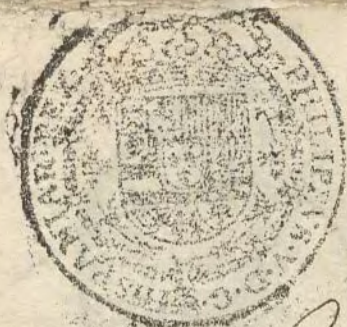 PHILIPVS·V·D·G·HISPANIAR·REX·